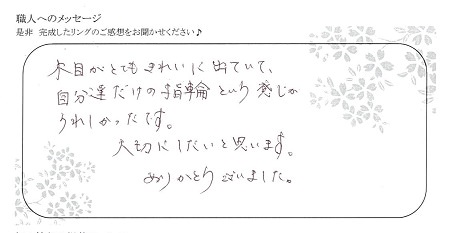 職人へのメッセージ
是非 完成したリングのご感想をお聞かせください♪
木目がとてもきれいに出ていて、
自分達だけの指輪という感じが
うれしかったです。
大切にしたいと思います。
ありがとうございました。